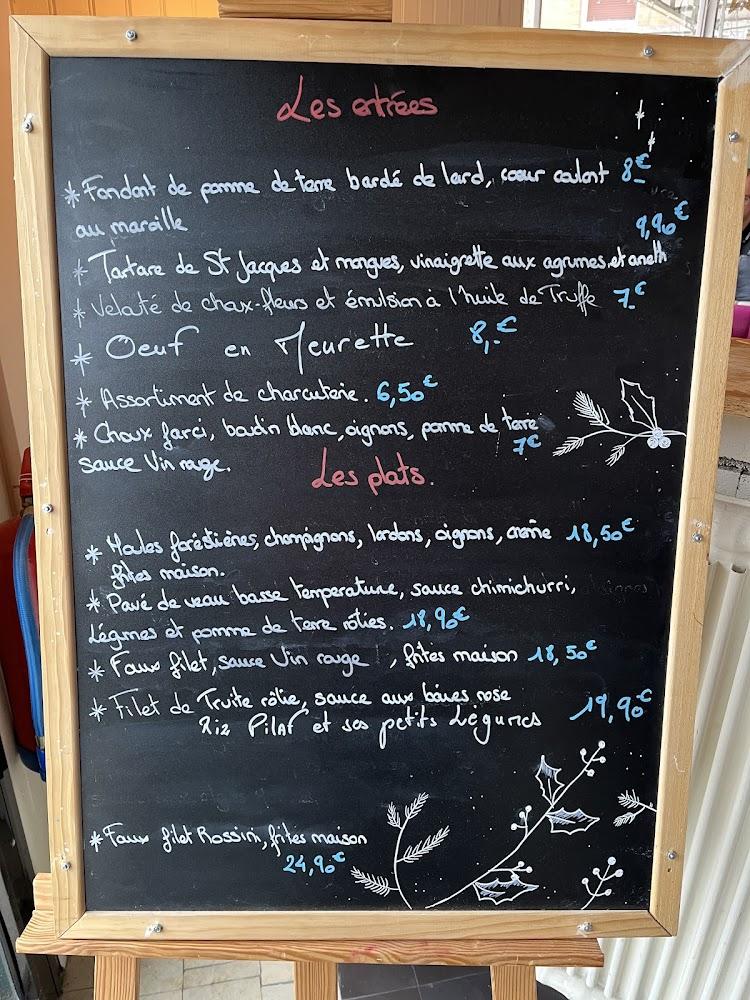 Les entrées
* Fondant de pomme de terre bardé de lard, coeur coulant 8€
au maroille
9,90€
* Tartare de St Jacques et mangues, vinaigrette aux agrumes et aneth
* Velouté de choux-fleurs et émulsion à l'huile de Truffe 7€
* Oeuf en Meurette 8,-€
* Assortiment de charcuterie. 6,50€
* Choux farci, boudin blanc, oignons, pomme de terre
7€
sauce Vin rouge.
Les plats.
* Moules foréstières, champignons, lardons, oignons, crème 18,50€
frites maison.
* Pavé de veau basse temperature, sauce chimichurri,
Légumes et pomme de terre rôties. 18,90€
* Faux filet, sauce Vin rouge, frites maison 18,50€
* Filet de Truite rôtie, sauce aux baies rose
Riz Pilaf et ses petits Légumes 19,90€
* Faux filet Rossini, frites maison
24,90€